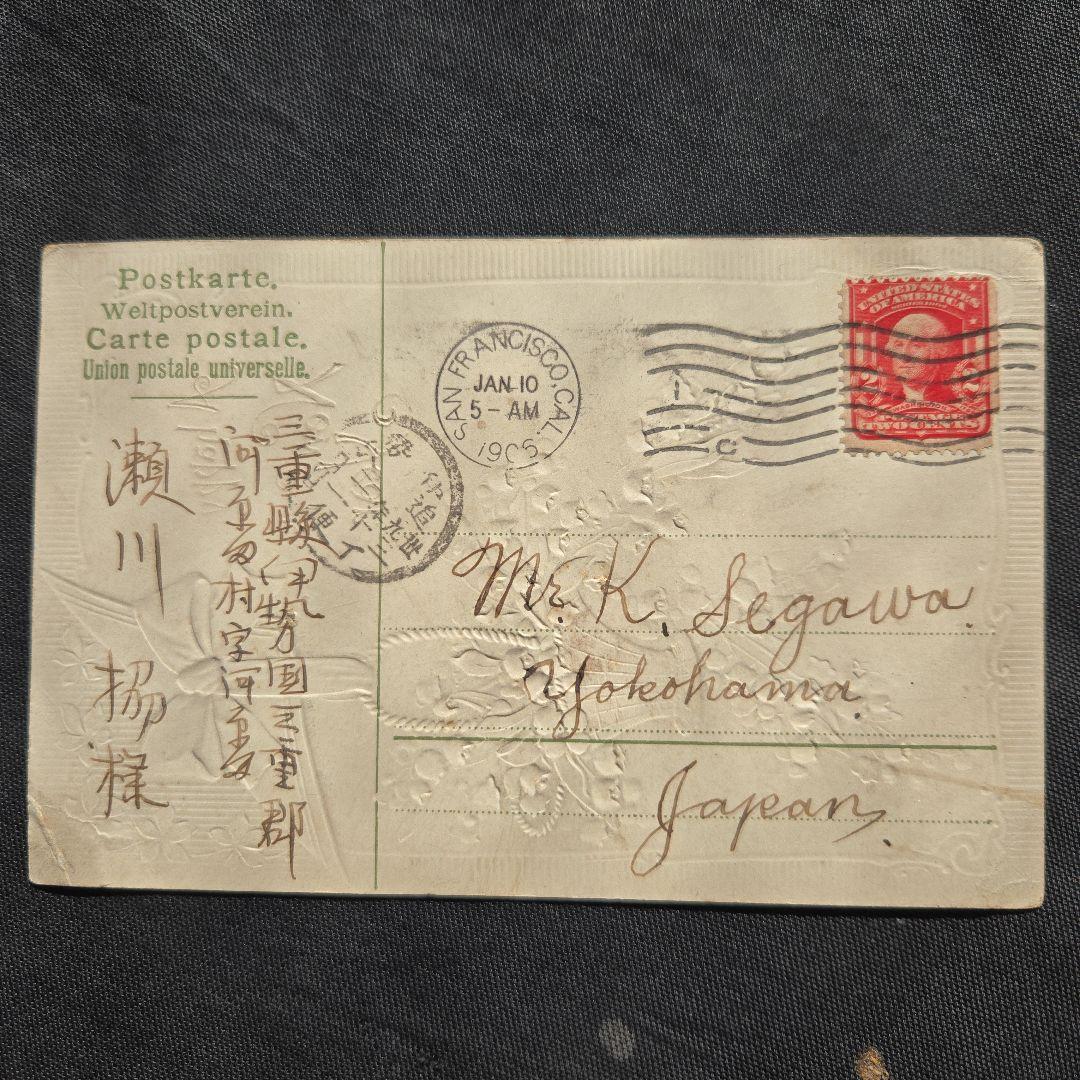 Postkarte.
Weltpostverein.
Carte postale.
Union postale universelle.
SAN FRANCISCO, CAL.
JAN 10
5 - AM
1906
1
C
UNITED STATES
OF AMERICA
2 2
TWO CENTS
Mr. K. Segawa.
Yokohama
Japan,
三重縣伊勢国三重郡
河原田村字河原田
瀬川 様